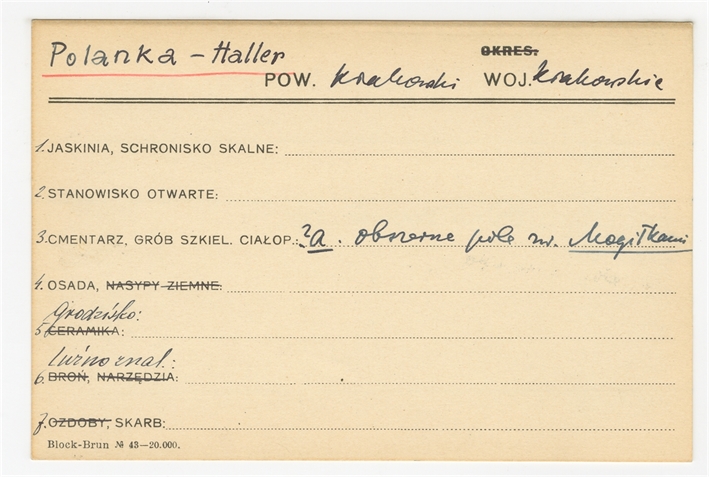 Polanka - Haller
OKRES.
POW. Krakowski WOJ. Krakowskie
1. JASKINIA, SCHRONISKO SKALNE:
2. STANOWISKO OTWARTE:
3. CMENTARZ, GRÓB SZKIEL. CIAŁOP.: ?a. obszerne pole zw. Mogiłkami
4. OSADA, NASYPY ZIEMNE.
Grodzisko:
5. CERAMIKA:
Luźno znal.:
6. BROŃ, NARZĘDZIA:
7. OZDOBY, SKARB:
Block-Brun № 43—20.000.